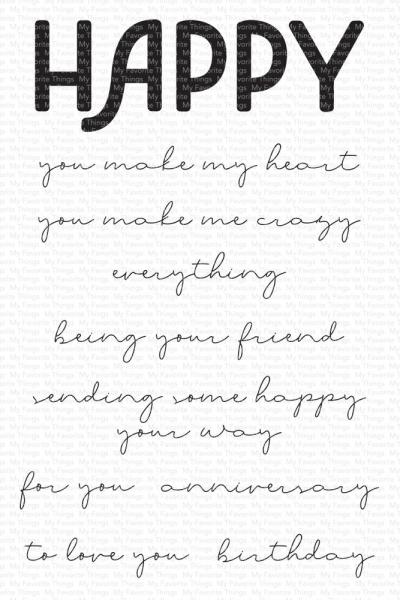 HAPPY
you make my heart
you make me crazy
everything
being your friend
sending some happy
your way
for you anniversary
to love you birthday
My Favorite Things